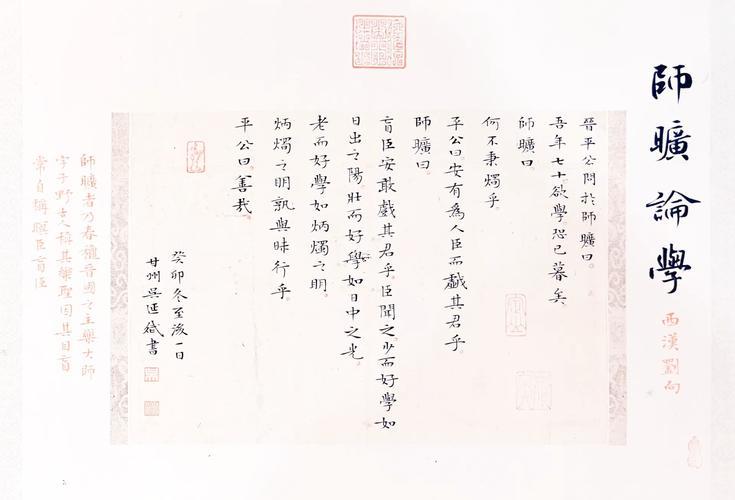 師曠論學
西漢劉向
晉平公問於師曠曰。
吾年七十欲學恐已暮矣
師曠曰。
何不秉燭乎
平公曰。安有為人臣而戲其君乎。
師曠曰。
盲臣安敢戲其君乎。臣聞之少而好學如
日出之陽壯而好學如日中之光
老而好學如炳燭之明。
炳燭之明孰與昧行乎。
平公曰。善哉。
癸卯冬至後一日
甘州吳匡斌書
師曠者乃春秋晉國之主樂大師
字子野古人稱其樂聖因其目盲
常自稱瞑臣盲臣